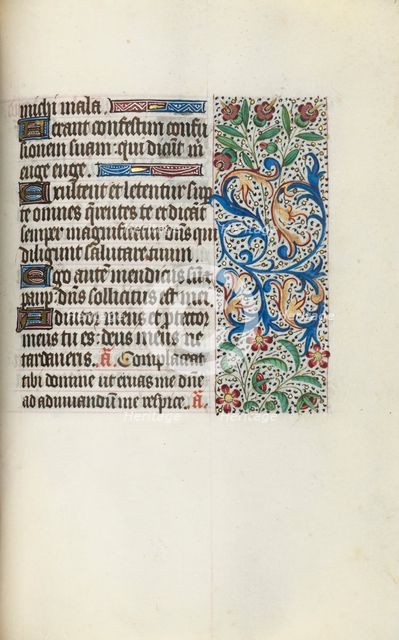 michi mala.
Ferant confestim confu
sionem suam: qui dicūt m̄
euge euge.
Exultent et letentur sup
te omnes q̄rentes te et dicāt
semper magnificetur dn̄s qui
diligunt salutare tuum.
Ego autē mendicus sū et
paup: dn̄s sollicitus est mei
Adiutor meus et ꝓtector
meus tu es: deus meus ne
tardaveris. Ā. Complaceat
tibi domine ut eruas me dn̄e
ad adiuvandū me respice. Ā.
Heritage
Heritage